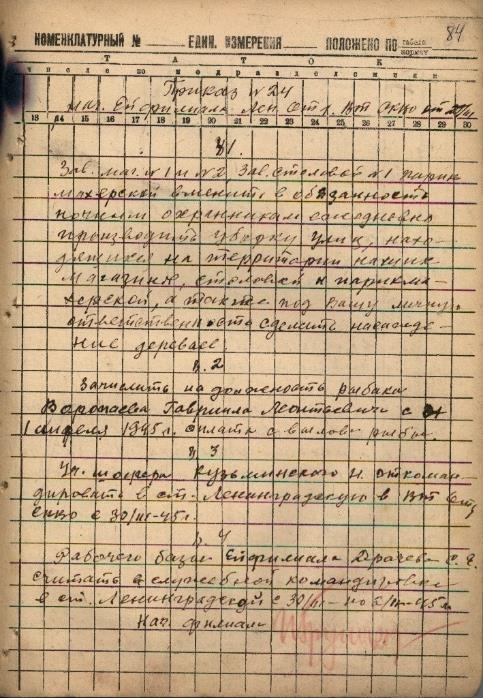 84
НОМЕНКЛАТУРНЫЙ № ЕДИН. ИЗМЕРЕНИЯ ПОЛОЖЕНО ПО табелю норме
Т А Т О К
числе по
Приказ №24
нач. филиала Лен. Отд. Вт СКВО от
13 14 15 16 17 18 19 20 21 22 23 24 25 26 27 28 29 30
§1.
Зав. маг. №1 и №2, Зав. столовой №1 парик-
махерской вменить в обязанность
ночным охранникам ежедневно
производить уборку улиц, нахо-
дящихся на территории
магазина, столовой и парикма-
херской, а также под вашу личную
ответственность сделать насажде-
ние деревьев.
§.2
Зачислить на должность рыбака
Воропаева Гавриила Леонтьевича с
1 апреля 1945г. оплата с вылова рыбы.
§ 3
шофера Кузьминского И. откоман-
дировать в ст. Ленинградскую в Вт Отд
СКВО с 30/III-45г.
§. 4
Рабочего базы филиала Драчева С. Е.
считать в служебной командировке
в ст. Ленинградской с 30/III- по 45г
Нач. филиала